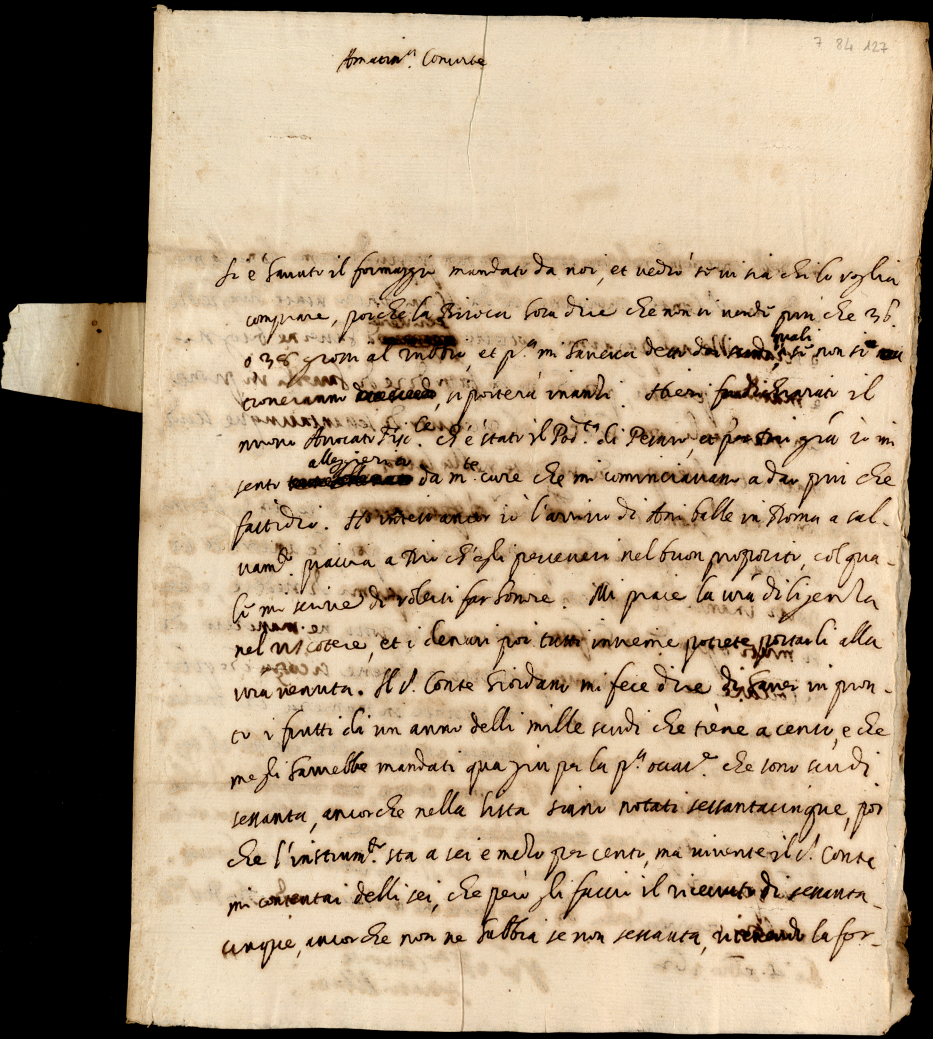 7 84 127
Amatiss.mo Consorte
Si è havuto il formaggio mandato da voi, et vedrò se vi sia chi lo voglia
comprare, poiche la Birocca sora dice che non si vende più che 36.
o 38 grossi al rubbio, et p.a mi
quali se non si
si porterà inanzi. Hieri il
nuovo Avocato Fisc.le ch'è stato il Pod.tà di Pesaro, et già io mi
sento
alleggierir
da m.te cure che mi cominciavano a dar più che
fastidio. Ho inteso ancor io l'arrivo di Aniballe in Roma a sal-
vam.to piaccia a Dio ch'egli perseveri nel buon proposito, col qua-
le mi scrive di volersi far honore. Mi piace la vra diligenza
nel riscotere, et i denari poi tutti insieme potrete portarli alla
vra venuta. Il S. Conte Giordano mi fece dire di haver in pron-
to i frutti di un anno delli mille scudi che tiene a censo, e che
me gli havrebbe mandati qua giù per la p.a occas.e che sono scudi
sessanta, ancorche nella lista siano notati sessantacinque, poi
che l'instrum.to sta a sei e mezo per cento, ma vivente il S. Conte
mi contentai delli sei, che però gli faccio il ricevuto di sessanta-
cinque, ancorche non ne habbia se non sessanta, ritenendo la for-